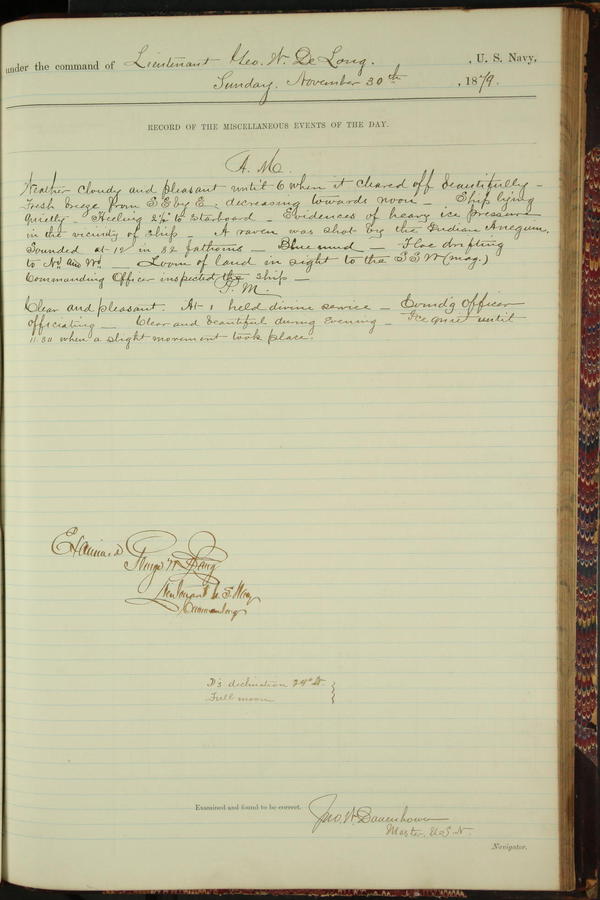 under the command of Lieutenant Geo. W. De Long. , U. S. Navy,
Sunday, November 30th , 1879.
RECORD OF THE MISCELLANEOUS EVENTS OF THE DAY.
A. M.
Weather cloudy and pleasant until 6 when it cleared off beautifully –
Fresh breeze from S.E by E. decreasing towards noon – Ship lying
quietly – Heeling 2½° to starboard – Evidences of heavy ice pressure
in the vicinity of ship – A raven was shot by the Indian Aneguin.
Sounded at 12 in 32 fathoms – Blue mud – Floe drifting
to Nd and Wd Loom of land in sight to the S.S.W (mag.)
Commanding Officer inspected the ship –
P. M.
Clear and pleasant. At 1 held divine service – Comd'g Officer
officiating – Clear and beautiful during evening – Ice quiet until
11.30 when a slight movement took place.
Examined
George W. De Long
Lieutenant U. S. Navy
Commanding
D's declination 24°
Full moon }
Examined and found to be correct.
Jno. W. Danenhower
Master, U.S.N.
Navigator.